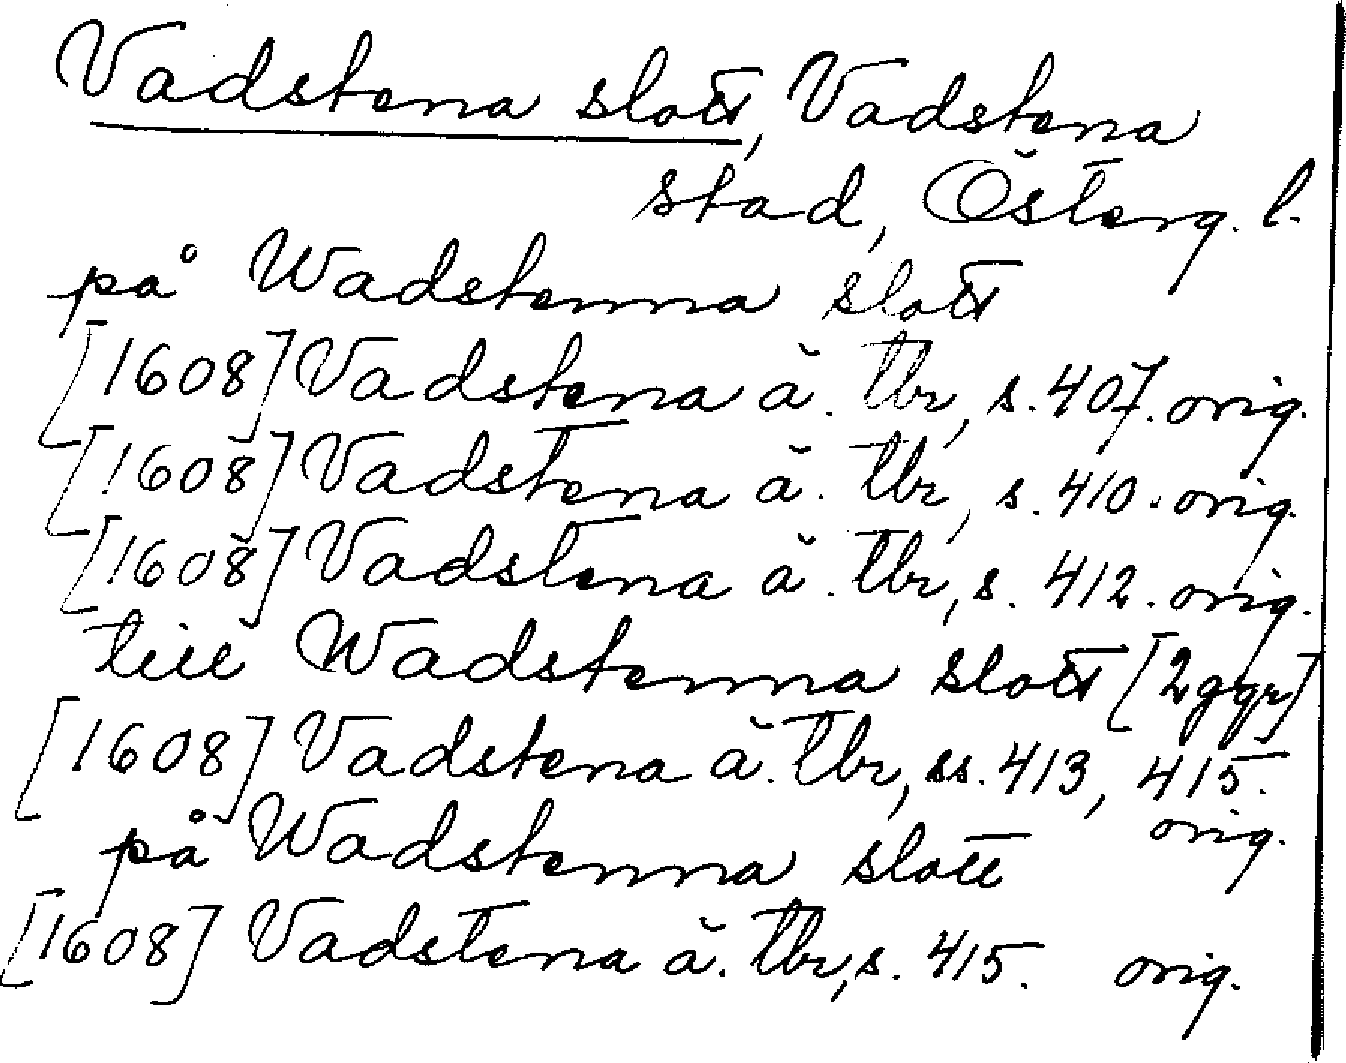 Vadstena slott, Vadstena
stad, Österg. l.
på Wadstenna slott
[1608] Vadstena ä. tbr, s. 407. orig.
[1608] Vadstena ä. tbr, s. 410. orig.
[1608] Vadstena ä. tbr, s. 412. orig.
till Wadstenna slott [2 ggr]
[1608] Vadstena ä. tbr, ss. 413, 415.
orig.
på Wadstenna slott
[1608] Vadstena ä. tbr, s. 415. orig.